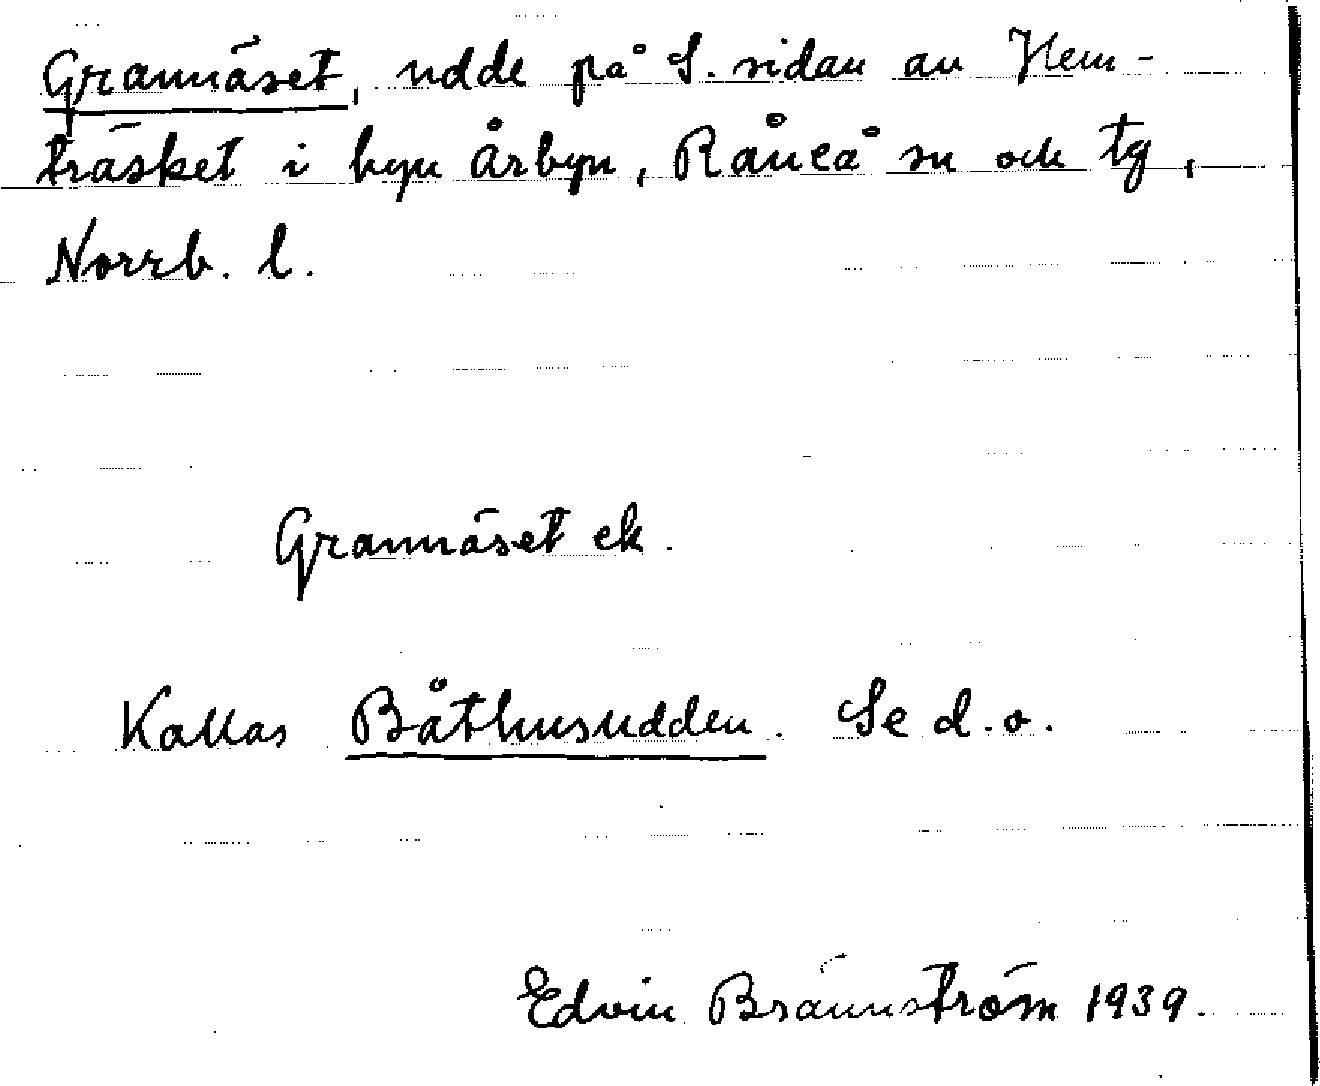 Grannäset, udde på S. sidan av Hem-
träsket i byn Årbyn, Råneå sn och tg,
Norrb. l.
Grannäset ek.
Kallas Båthusudden. Se d.o.
Edvin Brännström 1939.